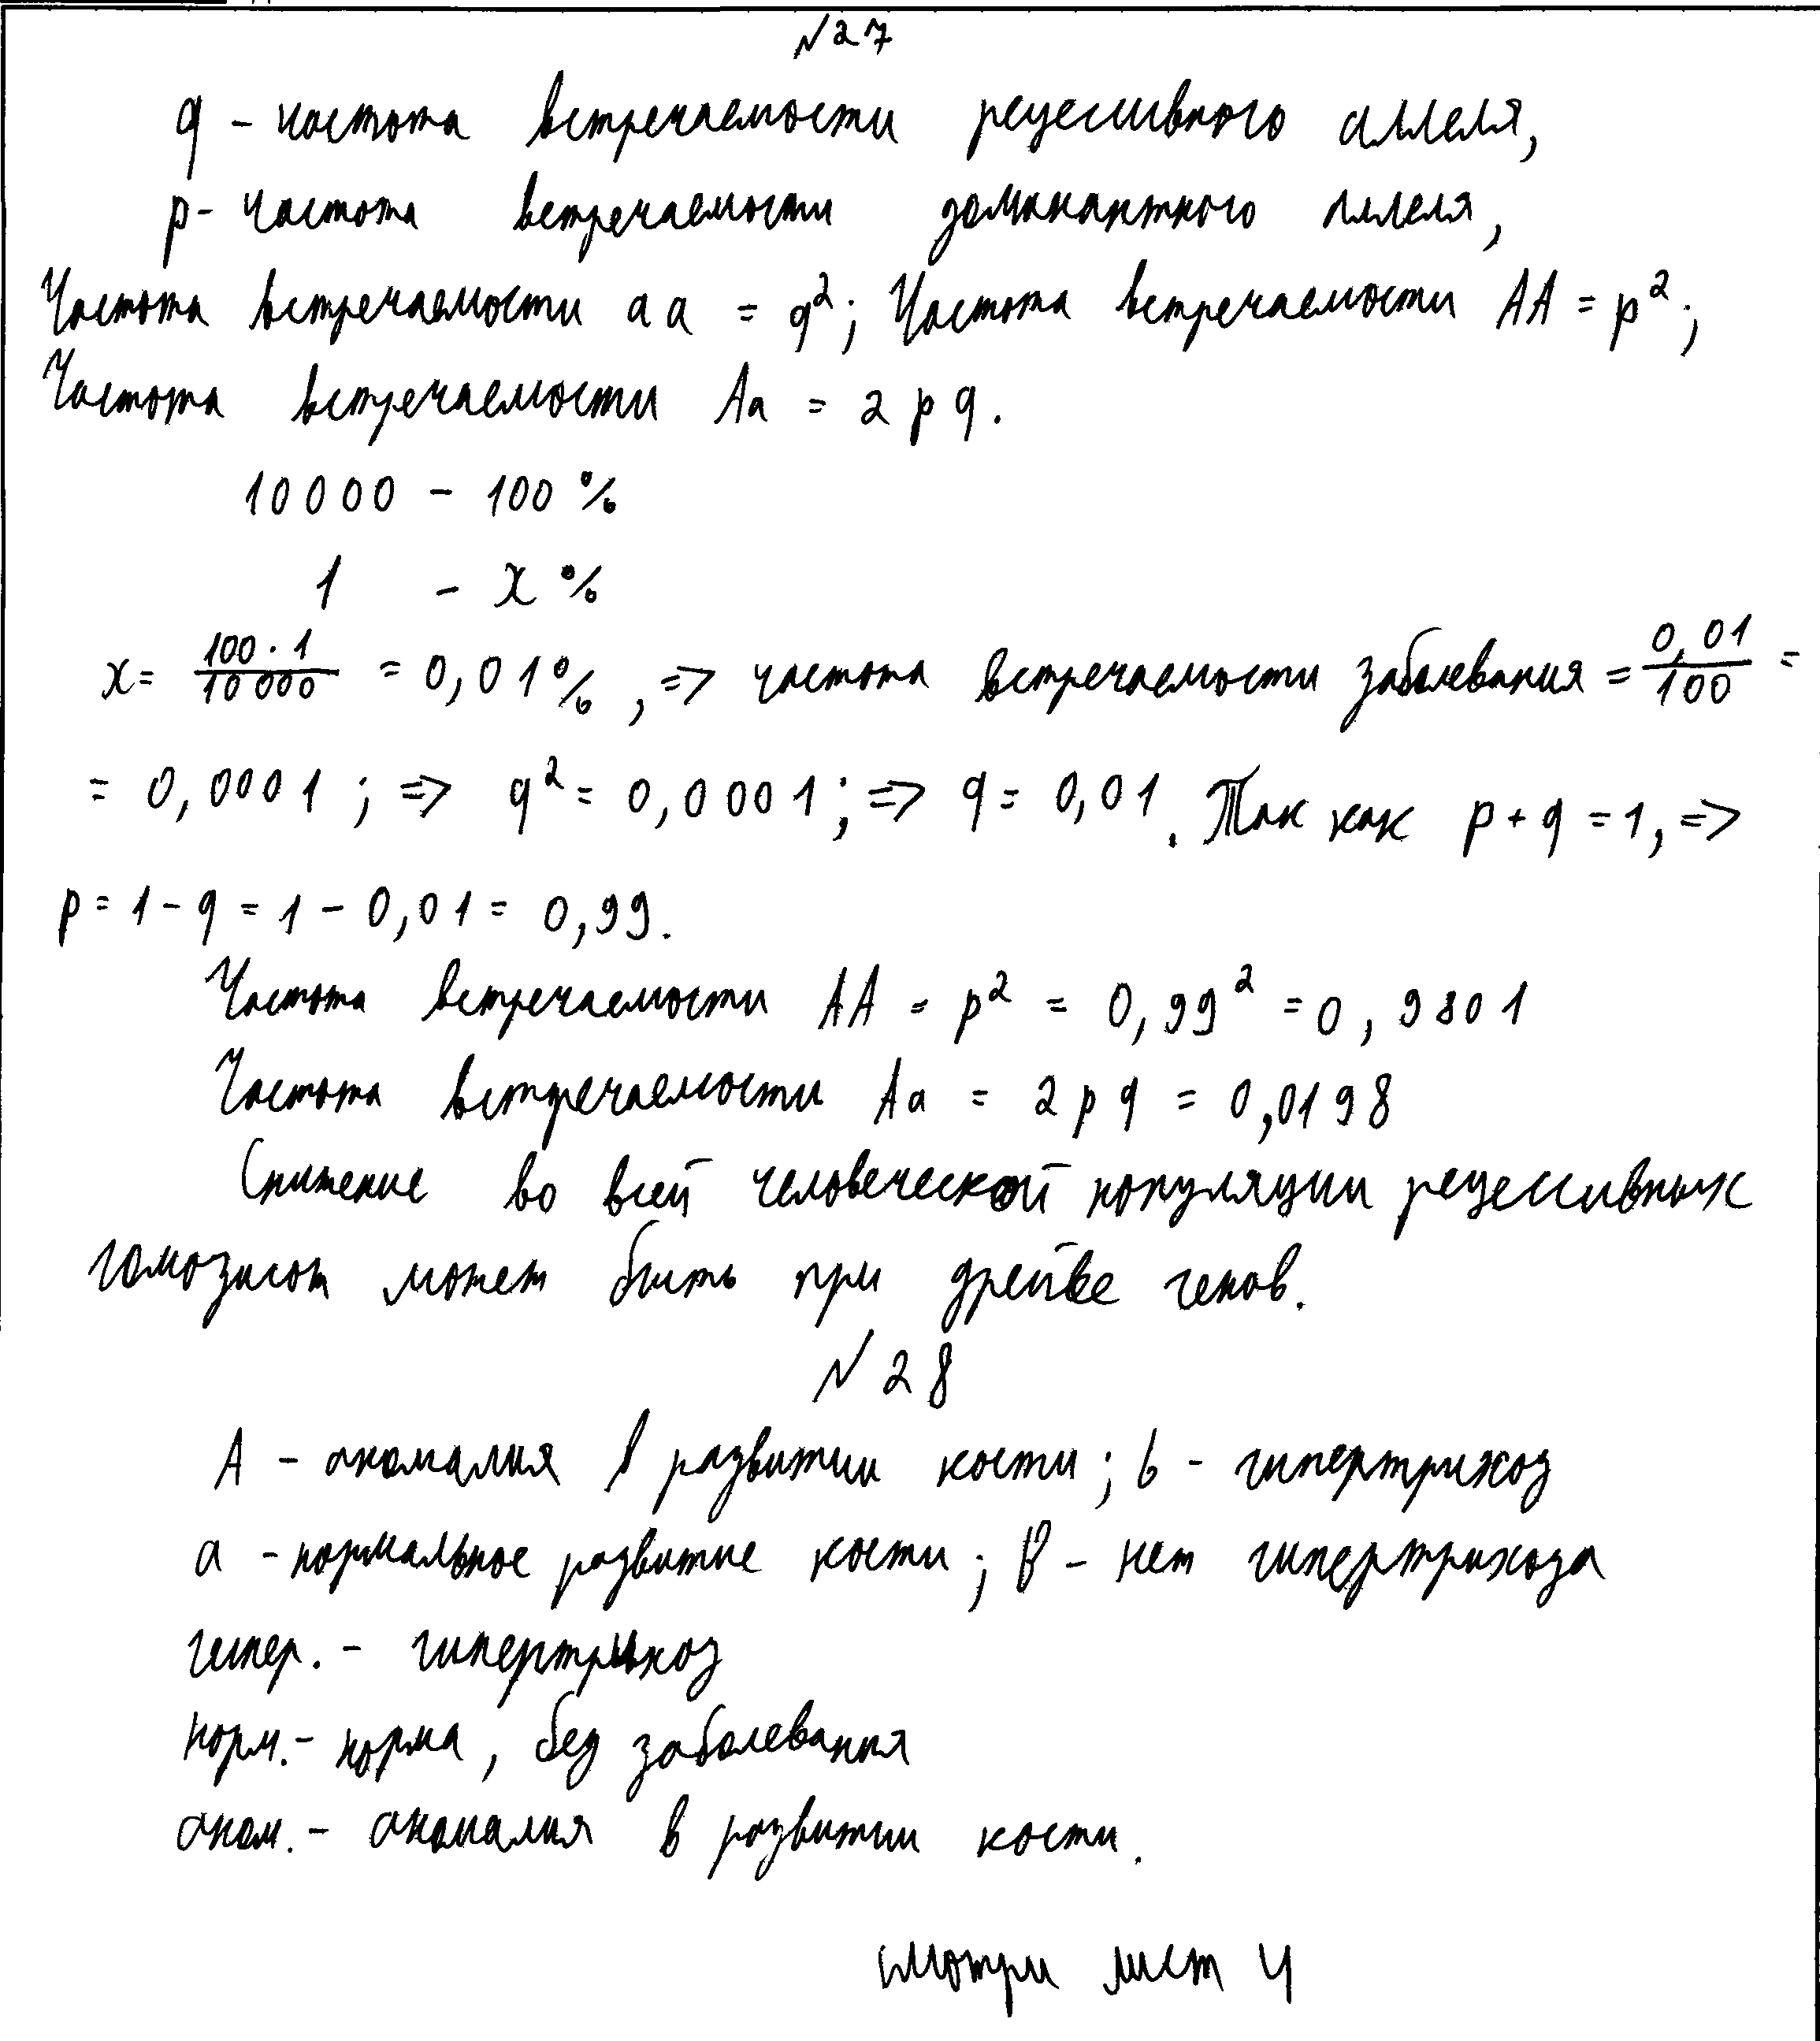 №27
q - частота встречаемости рецессивного аллеля,
p - частота встречаемости доминантного аллеля,
Частота встречаемости aa = q²; Частота встречаемости AA = p²;
Частота встречаемости Aa = 2pq.
10000 - 100%
1 - x%
x = 100·1/10000 = 0,01%, => частота встречаемости заболевания = 0,01/100 =
= 0,0001; => q² = 0,0001; => q = 0,01. Так как p + q = 1, =>
p = 1 - q = 1 - 0,01 = 0,99.
Частота встречаемости AA = p² = 0,99² = 0,9801
Частота встречаемости Aa = 2pq = 0,0198
Снижение во всей человеческой популяции рецессивных
гомозигот может быть при дрейфе генов.
№28
A - аномалия в развитии кости; b - гипертрихоз
a - нормальное развитие кости; B - нет гипертрихоза
гипер. - гипертрихоз
норм. - норма, без заболевания
аном. - аномалия в развитии кости.
смотри лист 4